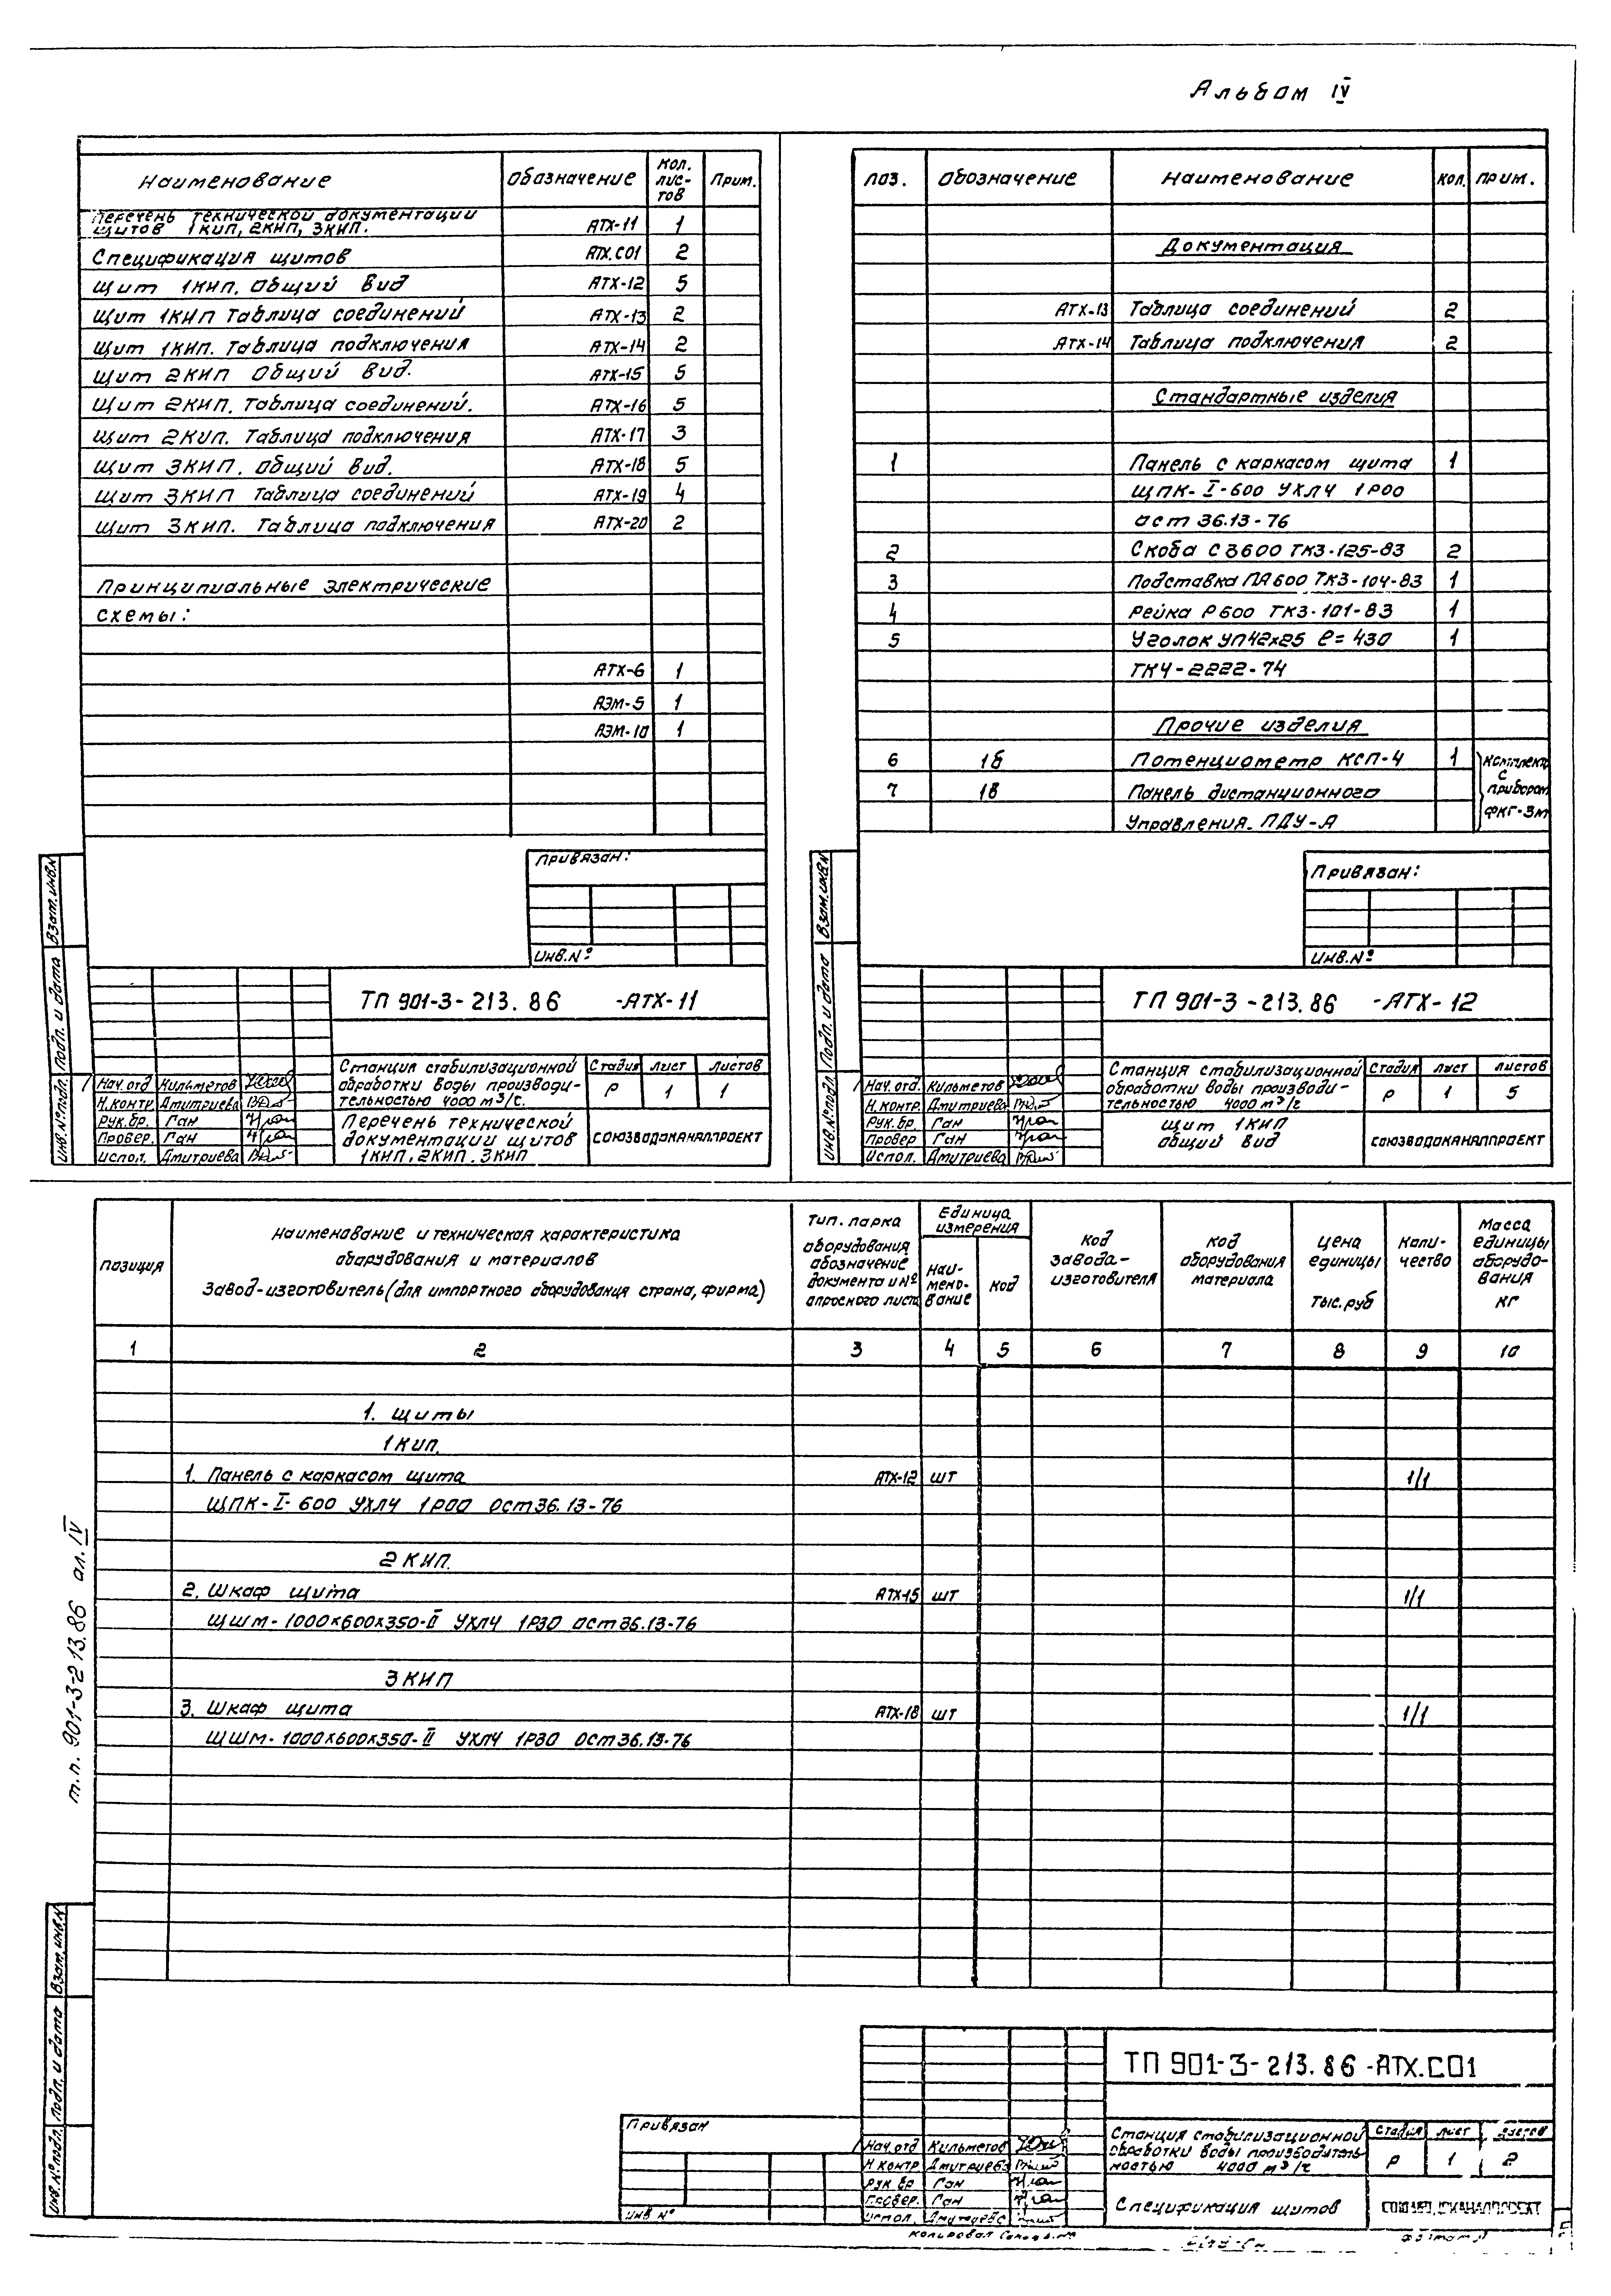 Альбом IV
Наименование Обозначение Кол. лис-тов Прим.
Перечень технической документации
щитов 1КИП, 2КИП, 3КИП. АТХ-11 1
Спецификация щитов АТХ.СО1 2
Щит 1КИП. Общий вид АТХ-12 5
Щит 1КИП Таблица соединений АТХ-13 2
Щит 1КИП. Таблица подключения АТХ-14 2
Щит 2КИП Общий вид. АТХ-15 5
Щит 2КИП. Таблица соединений. АТХ-16 5
Щит 2КИП. Таблица подключения АТХ-17 3
Щит 3КИП. Общий вид. АТХ-18 5
Щит 3КИП Таблица соединений АТХ-19 4
Щит 3КИП. Таблица подключения АТХ-20 2
Принципиальные электрические
схемы:
АТХ-6 1
АЭМ-5 1
АЭМ-10 1
Привязан:
Инв.№
Взам.инв.№
Подп. и дата
Инв.№подл.
ТП 901-3-213.86 -АТХ-11
Станция стабилизационной
обработки воды производи-
тельностью 4000 м³/с.
Стадия Лист Листов
Р 1 1
Нач.отд Кильметов
Н.контр. Дмитриева
Рук.бр. Ган
Провер. Ган
Испол. Дмитриева
Перечень технической
документации щитов
1КИП, 2КИП. 3КИП
СОЮЗВОДОКАНАЛПРОЕКТ
Поз. Обозначение Наименование Кол. Прим.
Документация
АТХ-13 Таблица соединений 2
АТХ-14 Таблица подключения 2
Стандартные изделия
1 Панель с каркасом щита 1
ЩПК-I-600 УХЛ4 1Р00
ОСТ 36.13-76
2 Скоба СЗ600 ТК3-125-83 2
3 Подставка ПА600 ТК3-104-83 1
4 Рейка Р600 ТК3-101-83 1
5 Уголок УП42х25 ℓ=430 1
ТК4-2222-74
Прочие изделия
6 1б Потенциометр КСП-4 1
7 1в Панель дистанционного
Управления. ПДУ-А
Комплект
с
прибором
ФКГ-3м
Привязан:
Инв.№
Взам.инв.№
Подп. и дата
Инв.№подл
ТП 901-3-213.86 -АТХ-12
Станция стабилизационной
обработки воды производи-
тельностью 4000 м³/г
Стадия Лист Листов
Р 1 5
Нач.отд. Кильметов
Н.контр. Дмитриева
Рук.бр. Ган
Провер Ган
Испол. Дмитриева
Щит 1КИП
общий вид
СОЮЗВОДОКАНАЛПРОЕКТ
Позиция
Наименование и техническая характеристика
оборудования и материалов
Завод-изготовитель (для импортного оборудования страна, фирма)
Тип. марка
оборудования
обозначение
документа и №
опросного листа
Единица
измерения
Наи-
мено-
вание
Код
Код
завода-
изготовителя
Код
оборудования
материала
Цена
единицы
Тыс.руб
Коли-
чество
Масса
единицы
оборудо-
вания
кг
1 2 3 4 5 6 7 8 9 10
1. Щиты
1КИП.
1. Панель с каркасом щита АТХ-12 шт 1/1
ЩПК-I-600 УХЛ4 1Р00 ОСТ36.13-76
2КИП.
2. Шкаф щита АТХ-15 шт 1/1
ЩШМ-1000х600х350-II УХЛ4 1Р30 ОСТ36.13-76
3КИП
3. Шкаф щита АТХ-18 шт 1/1
ЩШМ-1000х600х350-II УХЛ4 1Р30 ОСТ36.13-76
т.п. 901-3-213.86 ал. IV
Взам.инв.№
Подп. и дата
Инв.№подл.
ТП 901-3-213.86 -АТХ.СО1
Привязан
Инв №
Станция стабилизационной
обработки воды производитель-
ностью 4000 м³/г
Стадия Лист Листов
Р 1 2
Нач.отд Кильметов
Н.контр Дмитриева
Рук бр Ган
Провер. Ган
Испол. Дмитриева
Спецификация щитов
СОЮЗВОДОКАНАЛПРОЕКТ
Копировал
Формат